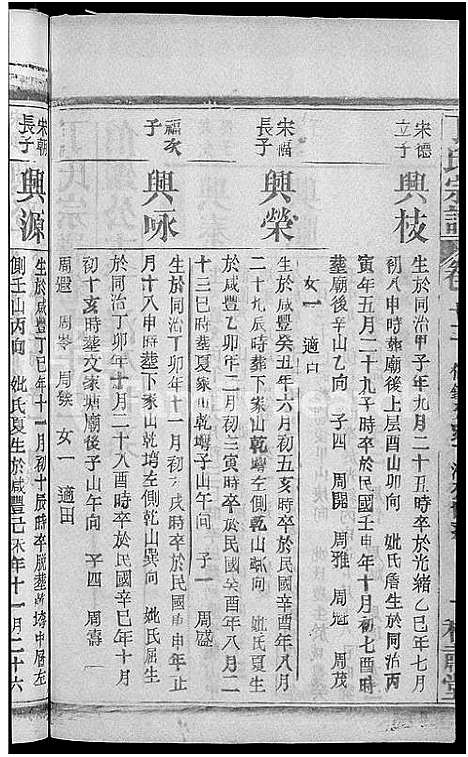 宋德
立子
興枝
生於同治甲子年九月二十丑時卒於光緒乙巳年七月
初八申時葬廟後上層酉山卯向 妣氏詹生於同治丙
寅年五月二十九子時卒於民國壬申年十月初七酉時
葬廟後辛山乙向 子四 周閗 周雅 周冠 周茂
女一 適卢
宋福
長子
興榮
生於咸豐癸丑年六月初五亥時卒於民國辛酉年八月
二十九辰時葬下家山乾塆左側乾山巽向 妣氏
於咸豐乙卯年二月初三寅時卒於民國癸酉年八月二
十三巳時葬夏家山乾塆子山午向 子一 周盛
福次
子
興咏
生於同治丁卯年十月初六戌時卒於民國
月十八申時葬下家山乾塆左側乾山巽向 妣氏屈生
於同治丁卯年十月二十八酉時卒於民國辛巳年十一月
初十亥時葬文家塘廟後子山午向 子四 周壽
周遐 周岺 周矦 女一 適田
宋朝
長子
興源
生於咸豐丁巳年十一月初十辰時卒脱葬塆中層左
側壬山丙向 妣氏夏生於咸豐己未年十一月二十六
氏宗譜